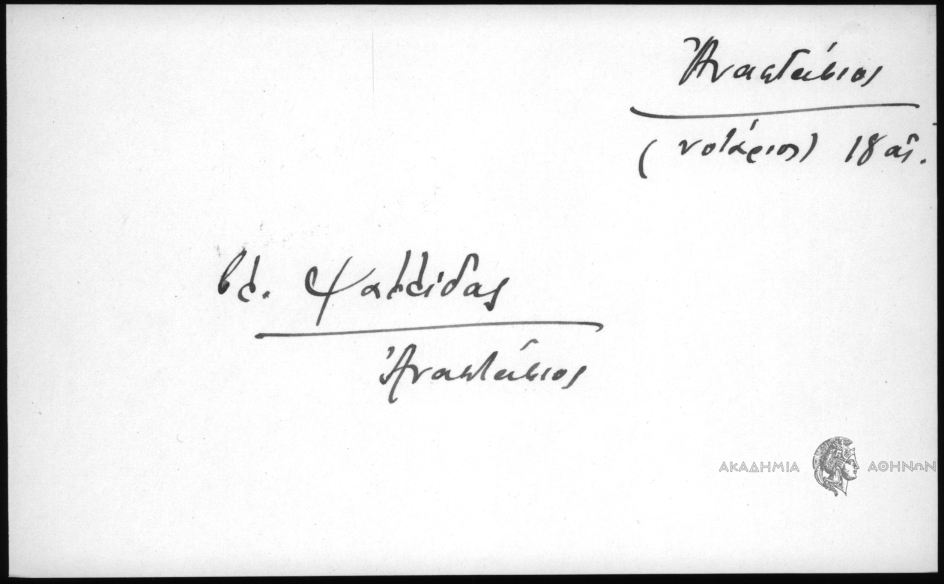 Ἀναστάσιος
(νοτάριος) 18 αἰ.
βλ. Ψαλλίδας
Ἀναστάσιος
ΑΚΑΔΗΜΙΑ ΑΘΗΝΩΝ